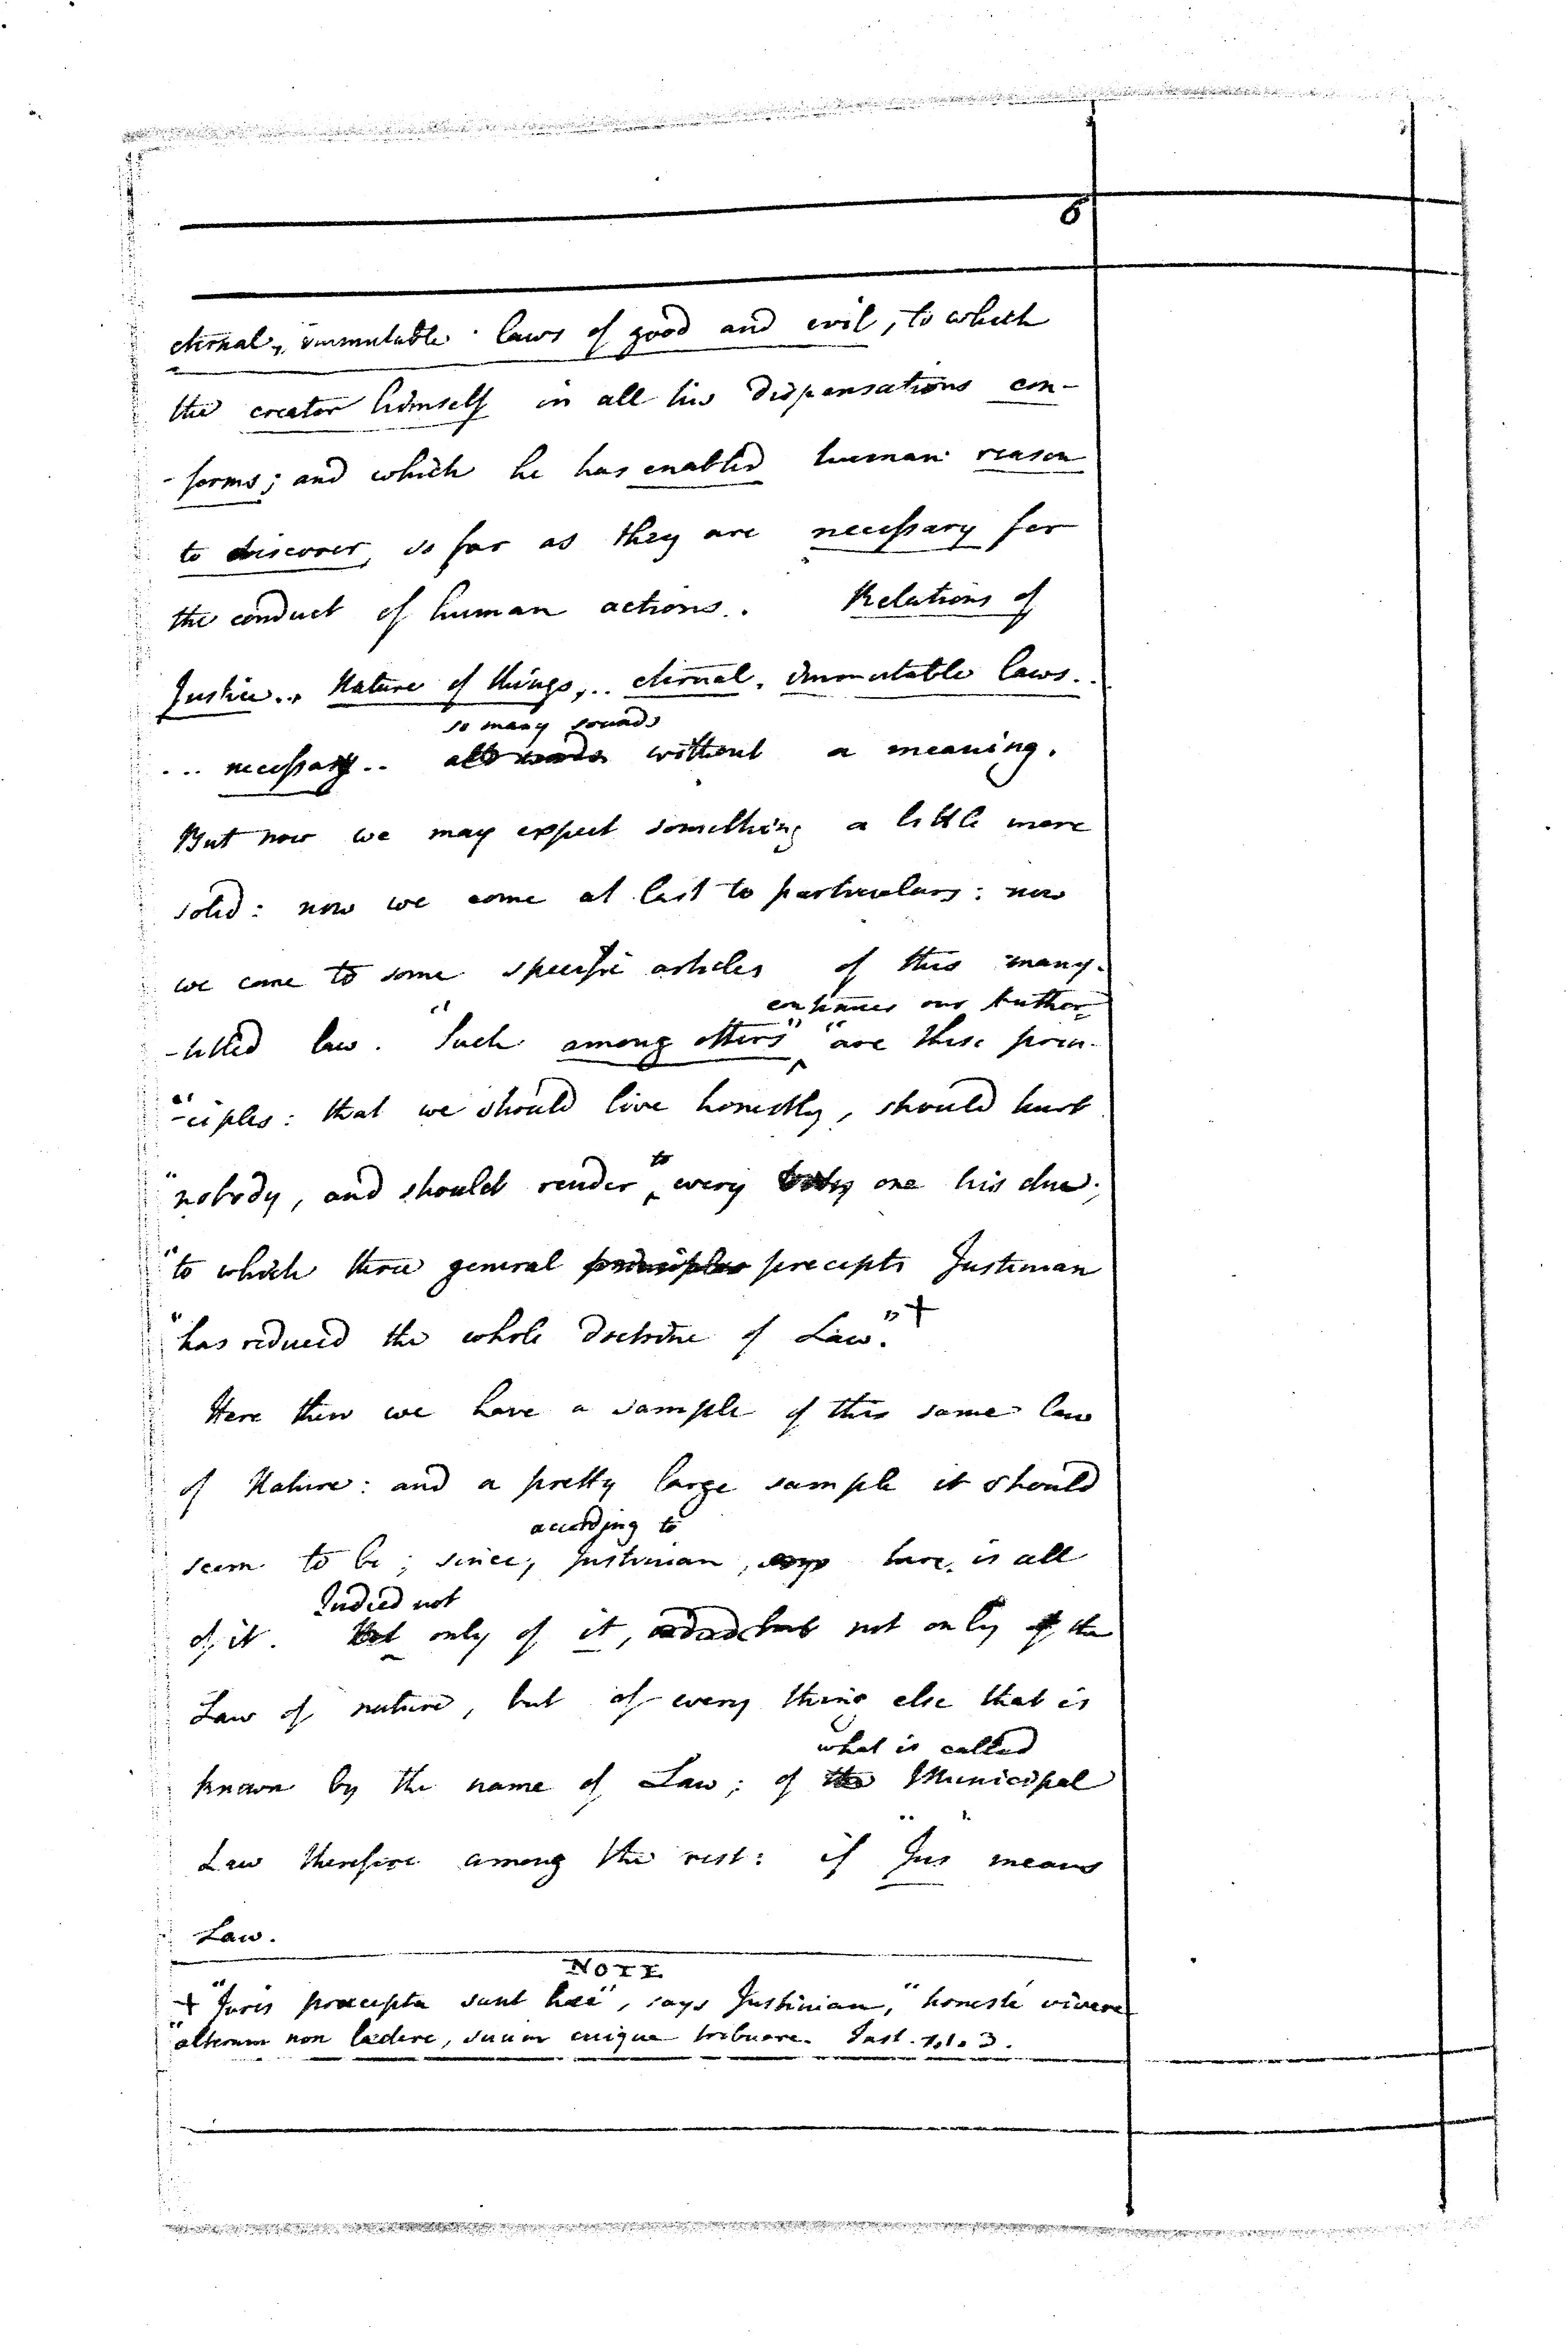 6
eternal, immutable laws of good and evil, to which
the creator himself in all his dispensations con-
-forms; and which he has enabled human reason
to discover, so far as they are necessary for
the conduct of human actions. Relations of
Justice.. Nature of things,.. eternal, immutable laws..
so many sounds
... necessary.. all words without a meaning.
But now we may expect something a little more
solid: now we come at last to particulars: now
we come to some specific articles of this many-
continues our Author
-titled law. "Such among others" "are these prin-
"-ciples: that we should live honestly, should hurt
to
"nobody, and should render every body one his due;
"to which three general principles precepts Justinian
"has reduced the whole doctrine of Law."+
Here then we have a sample of this same law
of Nature: and a pretty large sample it should
according to
seem to be; since, Justinian, says here, is all
Indeed not
of it. Not only of it, not only of the
Law of nature, but of every thing else that is
what is called
known by the name of Law; of the Municipal
Law therefore among the rest: if "Jus" means
Law.
NOTE
+ "Juris præcepta sunt hæc", says Justinian, "honestè vivere
"alterum non lædere, suum cuique tribuere. Inst. 1.1.3.